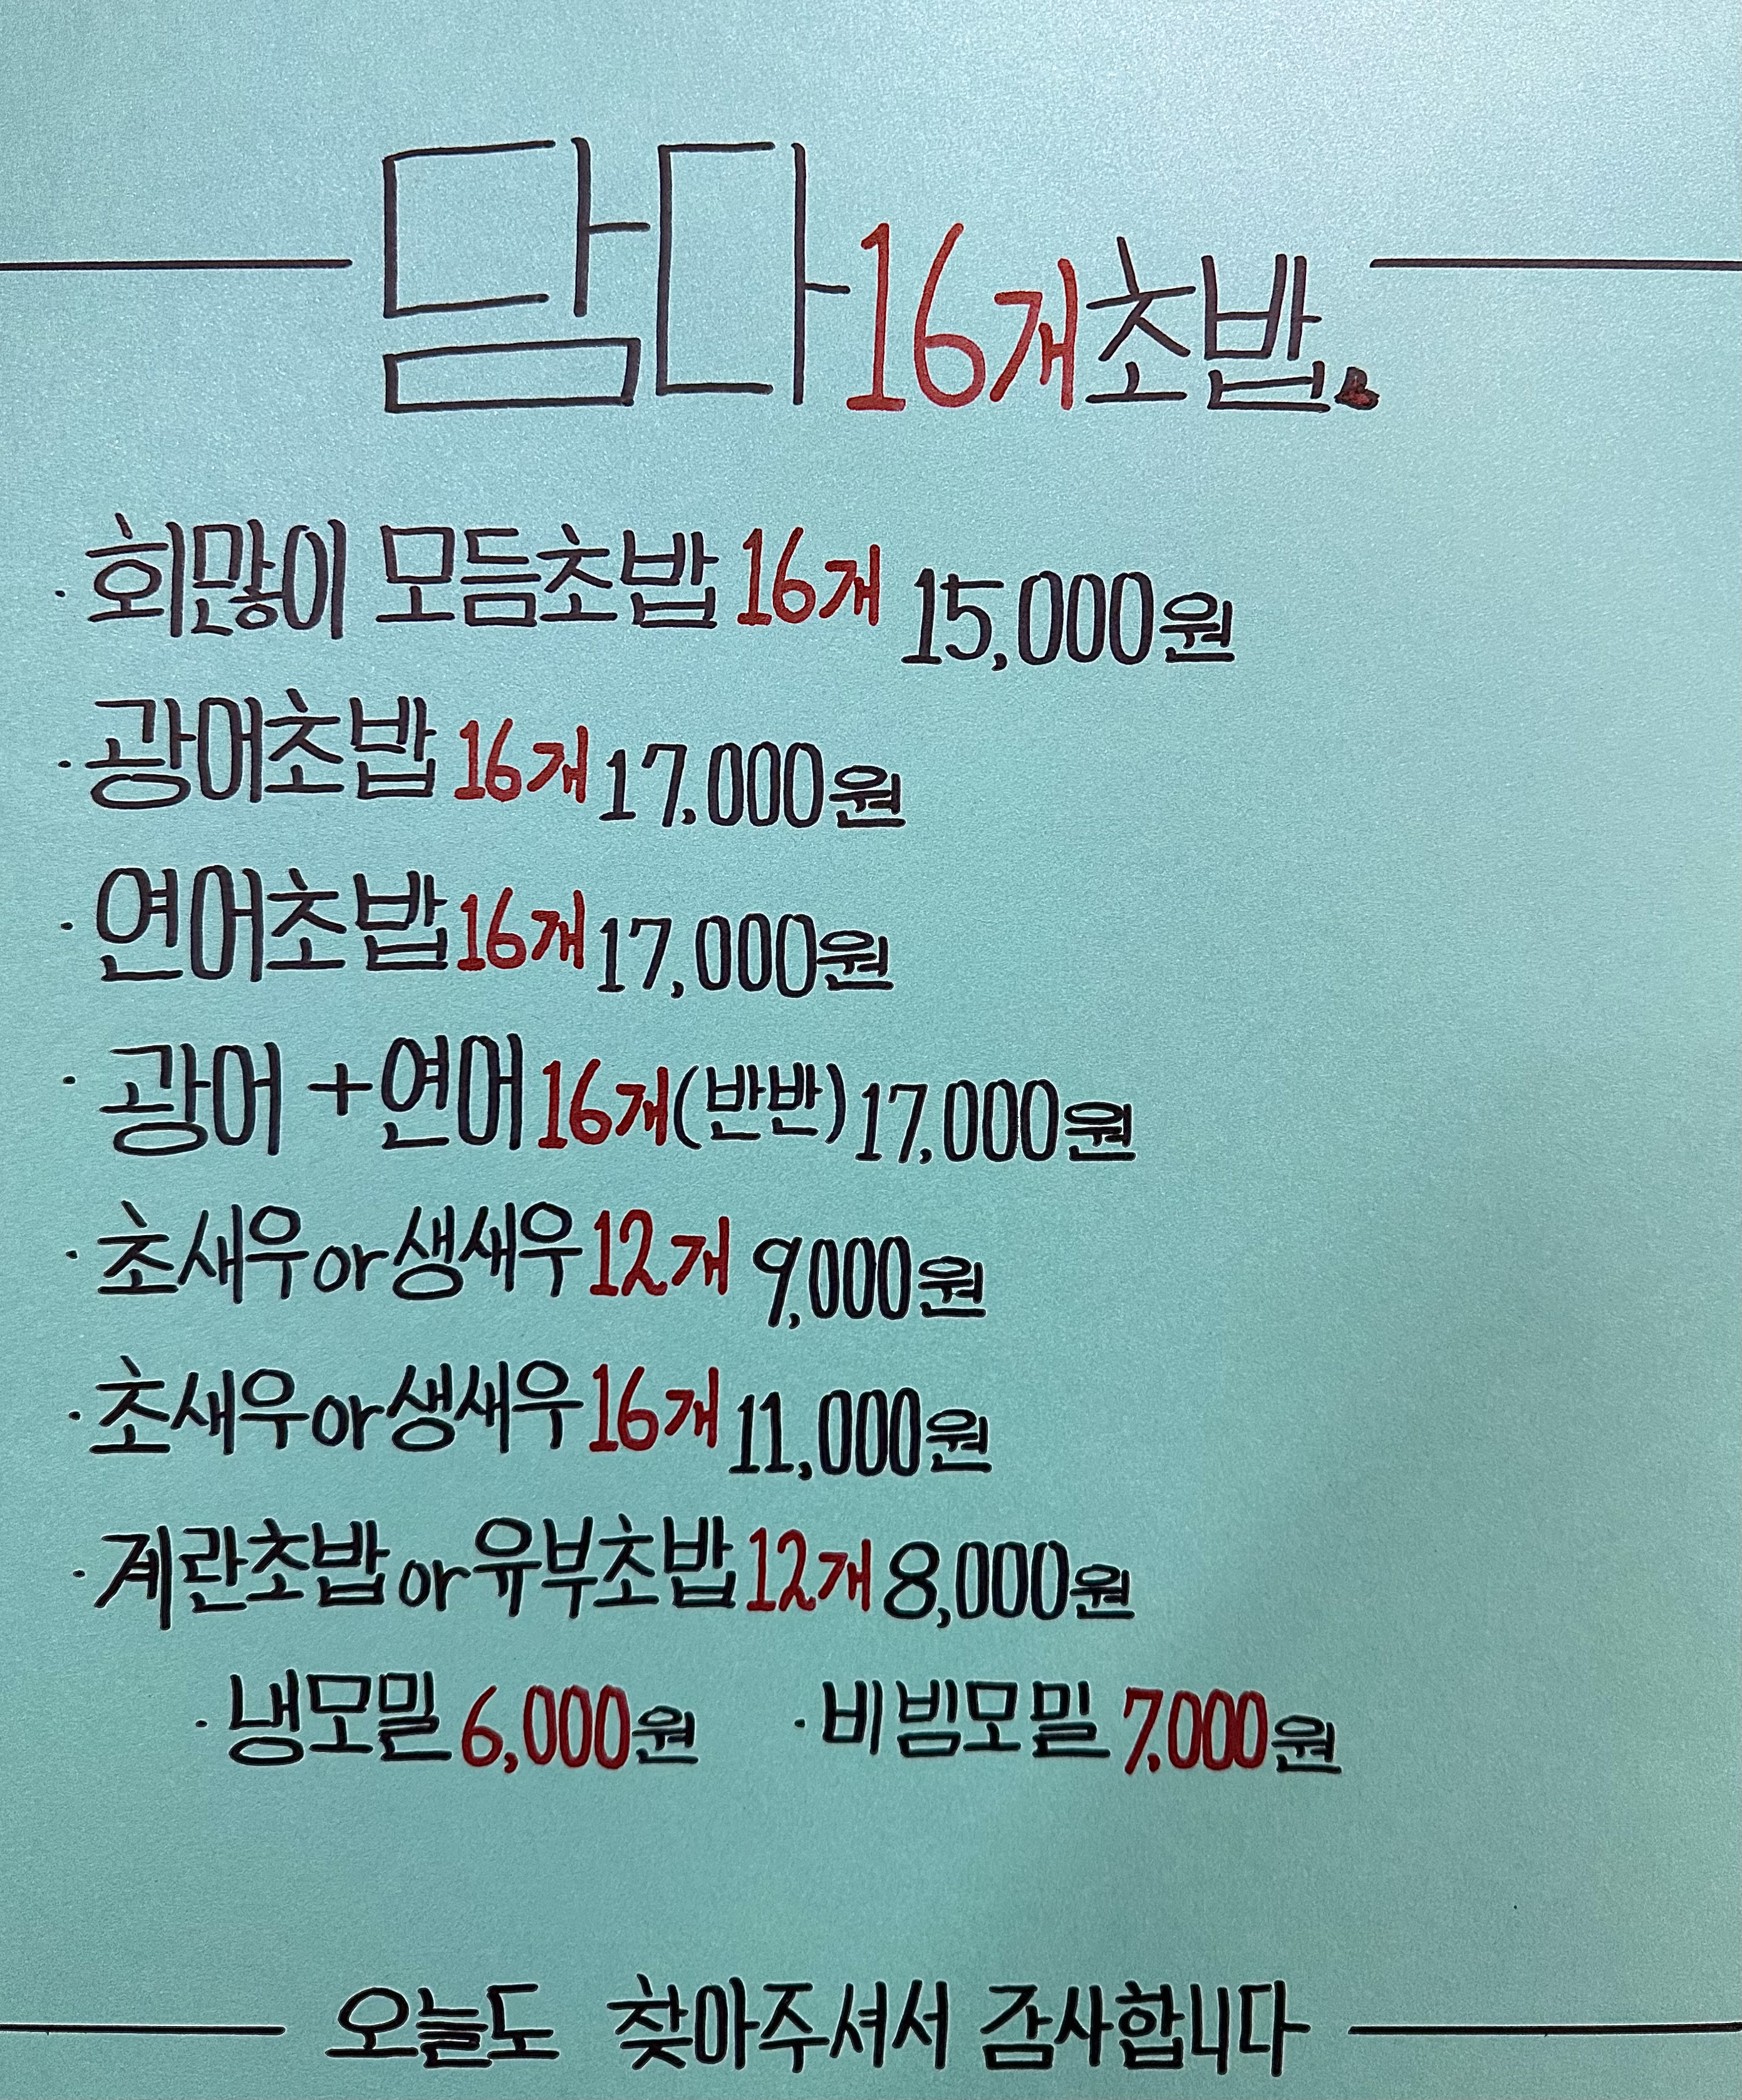 담다 16개 초밥
· 회많이 모듬초밥 16개 15,000원
· 광어초밥 16개 17,000원
· 연어초밥 16개 17,000원
· 광어 + 연어 16개(반반) 17,000원
· 초새우 or 생새우 12개 9,000원
· 초새우 or 생새우 16개 11,000원
· 계란초밥 or 유부초밥 12개 8,000원
· 냉모밀 6,000원 · 비빔모밀 7,000원
오늘도 찾아주셔서 감사합니다